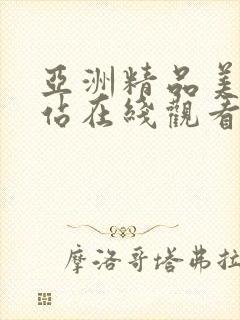 亞洲精品美
佔在綫觀看
摩洛哥塔弗拉